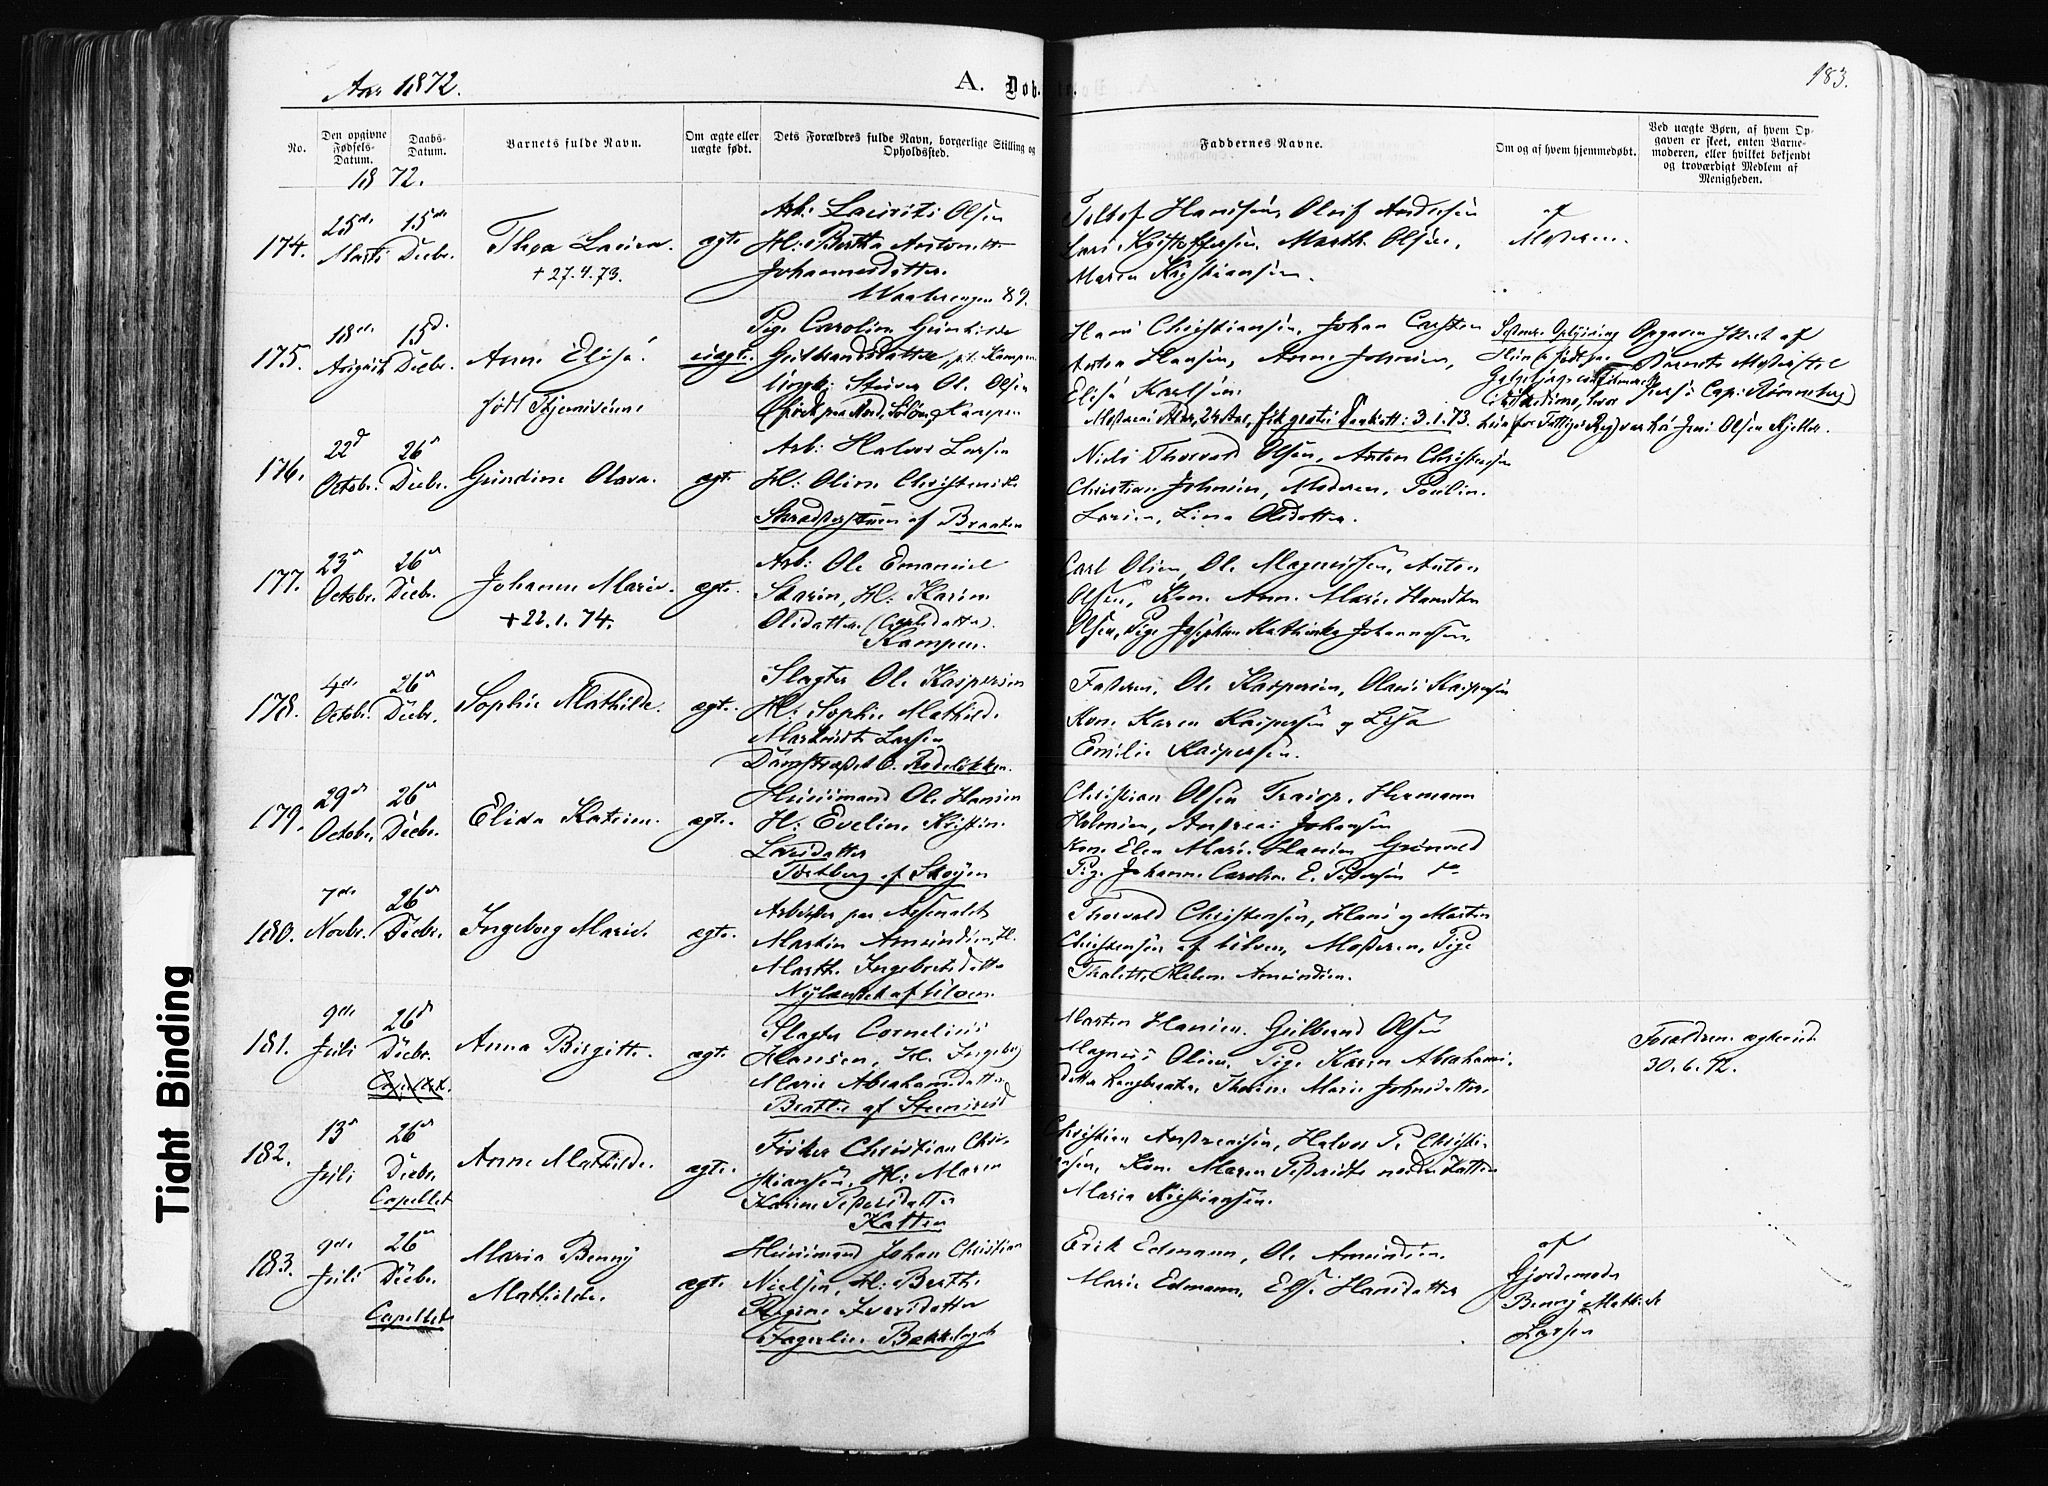 Aar 1872.
A. Døb
183.
No.
Den opgivne Fødsels-Datum.
Daabs-Datum.
Barnets fulde Navn.
Om ægte eller uægte født.
Dets Forældres fulde Navn, borgerlige Stilling og Opholdssted.
Faddernes Navne.
Om og af hvem hjemmedøbt.
Ved uægte Børn, af hvem Opgaven er skeet, enten Barnemoderen, eller hvilket bekjendt og troværdigt Medlem af Menigheden.
1872.
174.
25de Marts
15de Decbr.
Thea Lovisa.
+ 27.4.73.
ægte
Arb: Laurits Olsen
H: Berthe Antonette
Johannesdatter.
Waalerengen 89.
Hansen, Oluf Andersen
Lars Kristoffersen, Marthe Olsen,
Maren Kristiansen.
af
Moderen.
175.
18de August
15d. Decbr.
Anne Elise.
født Stjernsveen
uægte
Pige Caroline Gunhilde
Gulbrandsdatter, p.t. Kampen
Ungk: Ole Olsen
Hans Christiansen, Johan Carsten
Anton Hansen, Anne Johnsen,
Elise Karlsen.
3.1.73.
Opgaven skeet af
Barnets
176.
22d Octobr.
26de Decbr.
Gundine Olava.
ægte
Arb: Halvor Larsen
H: Oline Christensdtr
af Braaten
Niels Thorvald Olsen, Anton Christensen
Christian Johnsen, Moderen, Pouline
Larsen, Lina Olsdatter.
177.
23de Octobr.
26de Decbr.
Johanne Marie.
+ 22.1.74.
ægte.
Arb: Ole Emanuel
H: Karen
Olsdatter (Carlsdatter).
Kampen.
Carl Olsen, Ole Magnussen, Anton
Olsen, Kone Anne Marie
Olsen, Pige Josephine Kathinka Johannessen.
178.
4de Octobr.
26de Decbr.
Sophie Mathilde.
ægte.
Slagter Ole Kaspersen
H: Sophie Mathilde
Larsen
Rodeløkken.
Faderen, Ole Kaspersen, Olaus Kaspersen
Kone Karen Kaspersen og Lisa
Emilie Kaspersen.
179.
29de Octobr.
26de Decbr.
Elida Katrine.
ægte.
Huusmand Ole Hansen
H: Eveline Kristine
Larsdatter
af Skøyen
Christian Olsen, Hermann
Andreas Johansen
Kone Elen Marie Hansen Grünvold
Pige Johanne Caroline E. Pedersen do
180.
7de Novbr.
26de Decbr.
Ingeborg Marie.
ægte.
Arbeider paa Arsenalet
Martin Amundsen, H.
Marthe Ingebretsdatter
Nylændet af Ulven.
Thorvald Christensen, Hans og Martin
Christensen af Ulven, Moderen, Pige
Helene Amundsen.
181.
9de Juli
26de Decbr.
Capellet.
Anna Birgitte.
ægte.
Slagter Cornelius
Hansen, H. Ingeborg
Marie Abrahamsdatter
Martin Hansen, Gulbrand Olsen
Magnus Olsen, Pige Karen Abrahams-
datter Marie Johnsdatter.
Forældrene ægteviet
30.6.72.
182.
13de Juli
26de Decbr.
Capellet
Anne Mathilde.
ægte.
Fisker Christian Chris-
tiansen, H: Maren
Karine Pedersdatter
Katten
Christian Andreassen, Halvor P. Christi-
ansen, Kone Maren Katten
Maria Kristiansen.
183.
9de Juli
26de Decbr.
Capellet
Maria Benny
Mathilde.
ægte.
Huusmand Johan Christian
Nielsen, H: Berthe
Regine Iversdatter
Fagerlien Bækkelaget
Erik Edmann, Ole Amundsen.
Marie Edmann, Else Hansdatter
af
Gjordemoder
Benny Mathilde
Larsen
Tight Binding